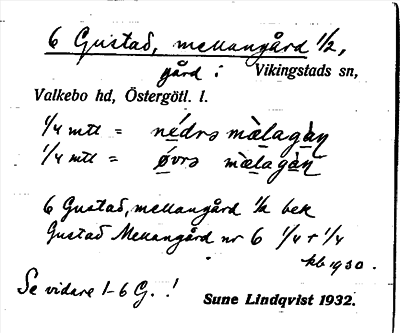 6 Gustad, mellangård 1/2,
gård i Vikingstads sn,
Valkebo hd, Östergötl. l.
1/4 mtl = nédrə mὰlagὰŋ
1/4 mtl = ǿvrə mὰlagὰŋ
6 Gustad, mellangård 1/2 bek
Gustad Mellangård nr 6 1/4 + 1/4
kb 1930.
Se vidare 1-6 G. !
Sune Lindqvist 1932.